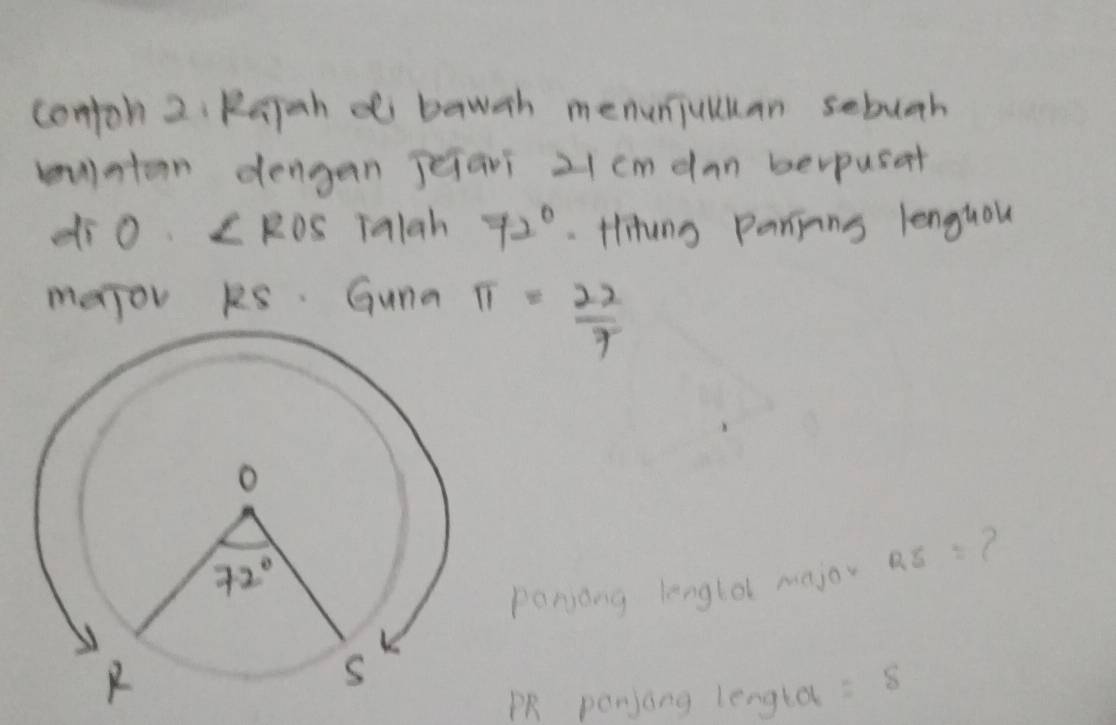 contoh 2. Rajah di bawah menunjukkan sebuah
bulatan dengan jejari 21 cm dan berpusat
di O. ∠ROS ialah 72°. Hitung panjang lengkok
major RS. Guna π = 22/7
O
72°
R
S
panjang lengkok major RS = ?
PR panjang lengkok = s